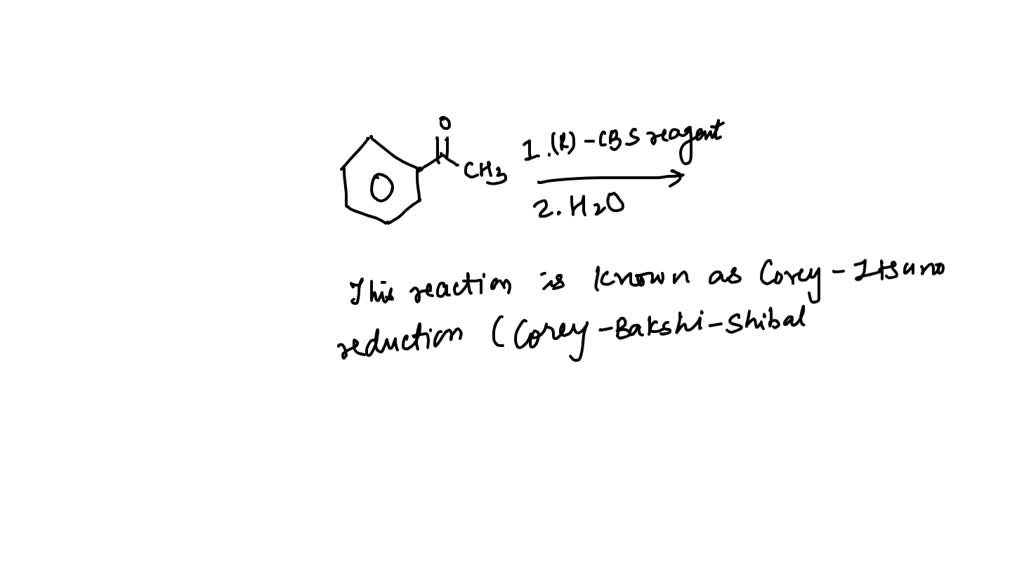 O
CH3
1.(R)-CBS reagent
2. H2O
This reaction is known as Corey-Itsuno
reduction (Corey-Bakshi-Shibal